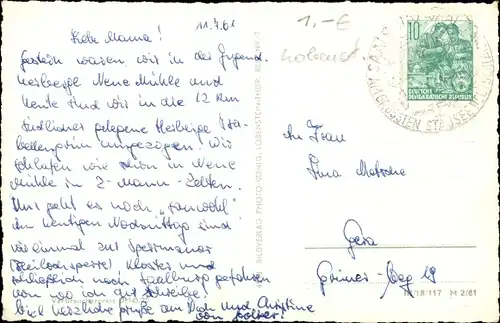 11.7.61
1,-€
Liebe Mama!
Gestern waren wir in der Jugend
herberge Neue Mühle und
heute sind wir in die 12 km
südlicher gelegene Herberge Isa-
bellengrün umgezogen. Wir
schlafen wie schon in Neue
Mühle in 2-Mann-Zelten.
Uns geht es noch "sauwohl"
Am heutigen Nachmittag sind
wir einmal zur Sperrmauer
Kloster und
schließlich nach Saalburg gefahren
von wo ich dir schreibe.
Viel herzliche Grüße an Dich und Christine
von
BILDVERLAG PHOTO-KÖNIG, LOBENSTEIN/THÜR.
10
DEUTSCHE
DEMOKRATISCHE REPUBLIK
GRÖSSTEN STAUSEE
An Frau
Lina
Gera
Greizer-Weg 19
IV/18/117 H 2/61